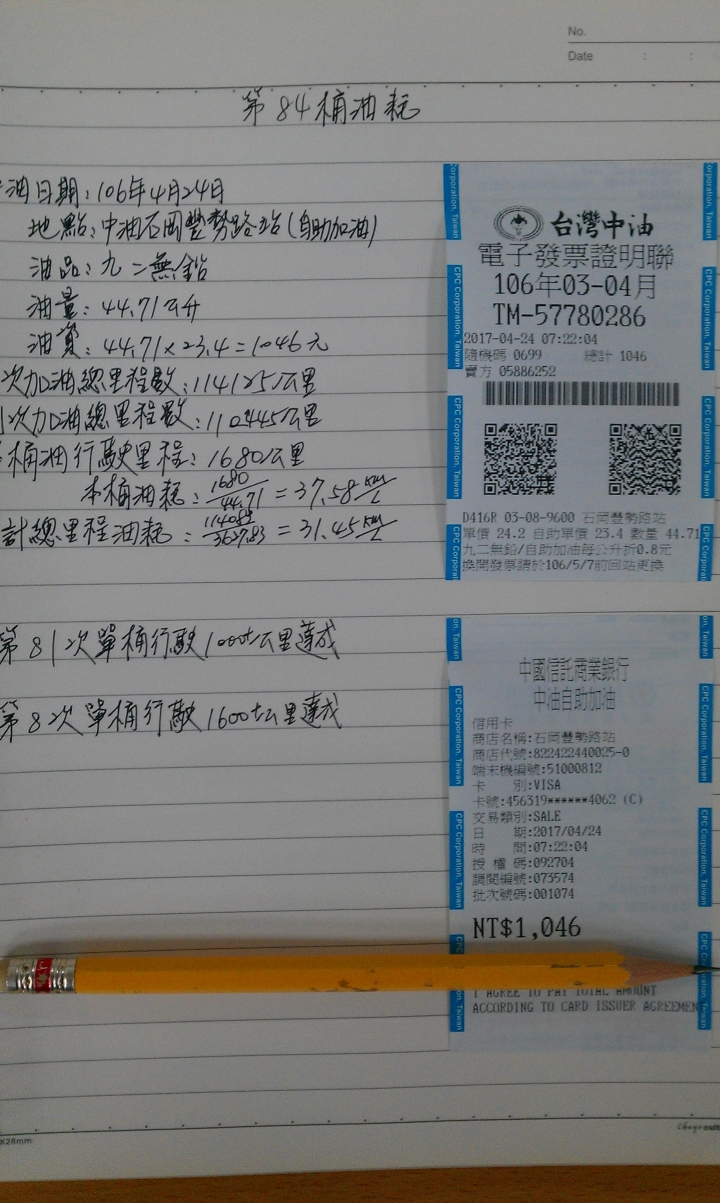 No.
Date : :
第84桶油耗
油日期：106年4月24日
地點：中油石岡豐勢路站(自助加油)
油品：九二無鉛
油量：44.71公升
油資：44.71×23.4=1046元
次加油總里程數：114125公里
次加油總里程數：112445公里
桶油行駛里程：1680公里
本桶油耗：1680/44.71=37.58km/L
計總里程油耗：114085/3627.83=31.45km/L
第81次單桶行駛1000+公里達成
第8次單桶行駛1600+公里達成
台灣中油
電子發票證明聯
106年03-04月
TM-57780286
2017-04-24 07:22:04
隨機碼 0699 總計 1046
賣方 05886252
D416R 03-08-9600 石岡豐勢路站
單價 24.2 自助單價 23.4 數量 44.71
九二無鉛/自助加油每公升折0.8元
換開發票請於106/5/7前回站更換
CPC Corporation, Taiwan
中國信託商業銀行
中油自助加油
信用卡
商店名稱:石岡豐勢路站
商店代號:822422440025-0
端末機編號:51000812
卡 別:VISA
卡號:456319******4062 (C)
交易類別:SALE
日 期:2017/04/24
時 間:07:22:04
授 權 碼:092704
調閱編號:073574
批次號碼:001074
NT$1,046
I AGREE TO PAY TOTAL AMOUNT
ACCORDING TO CARD ISSUER AGREEMEN
X28mm